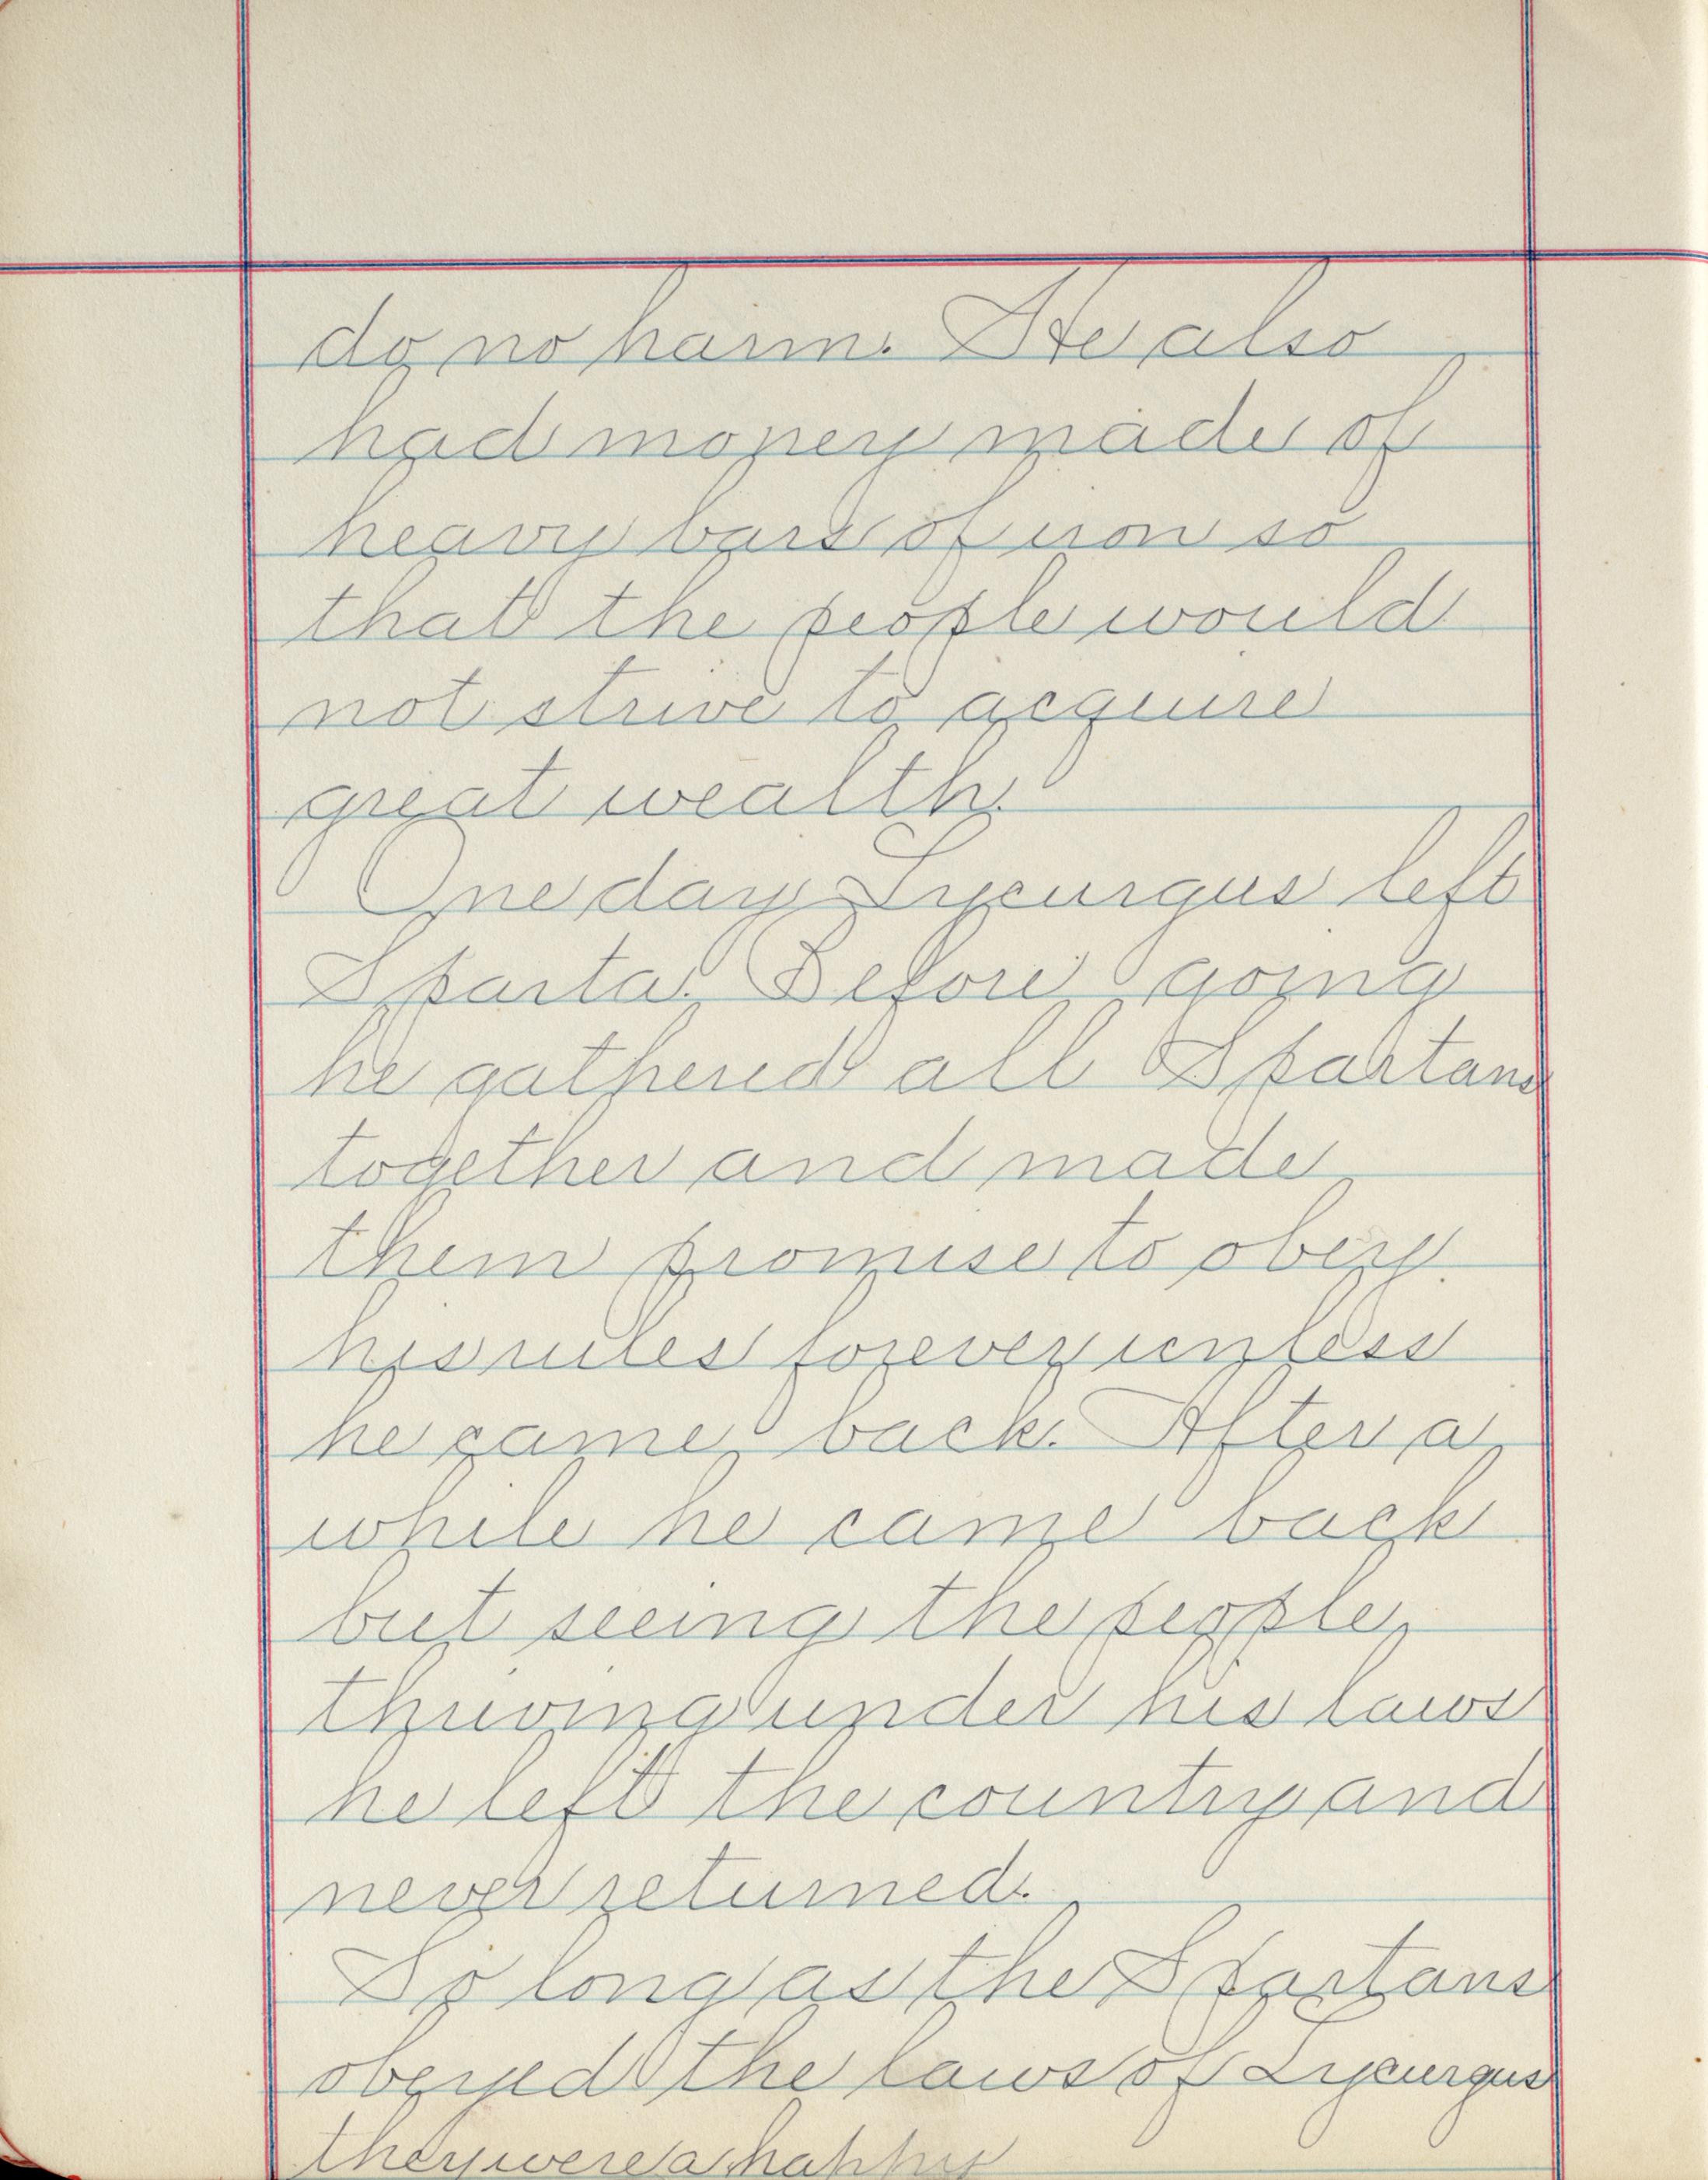 do no harm. He also
had money made of
heavy bars of iron so
that the people would
not strive to acquire
great wealth.
One day Lycurgus left
Sparta. Before going
he gathered all Spartans
together and made
them promise to obey
his rules forever unless
he came back. After a
while he came back
but seeing the people
thriving under his laws
he left the country and
never returned.
So long as the Spartans
obeyed the laws of Lycurgus
they were a happy